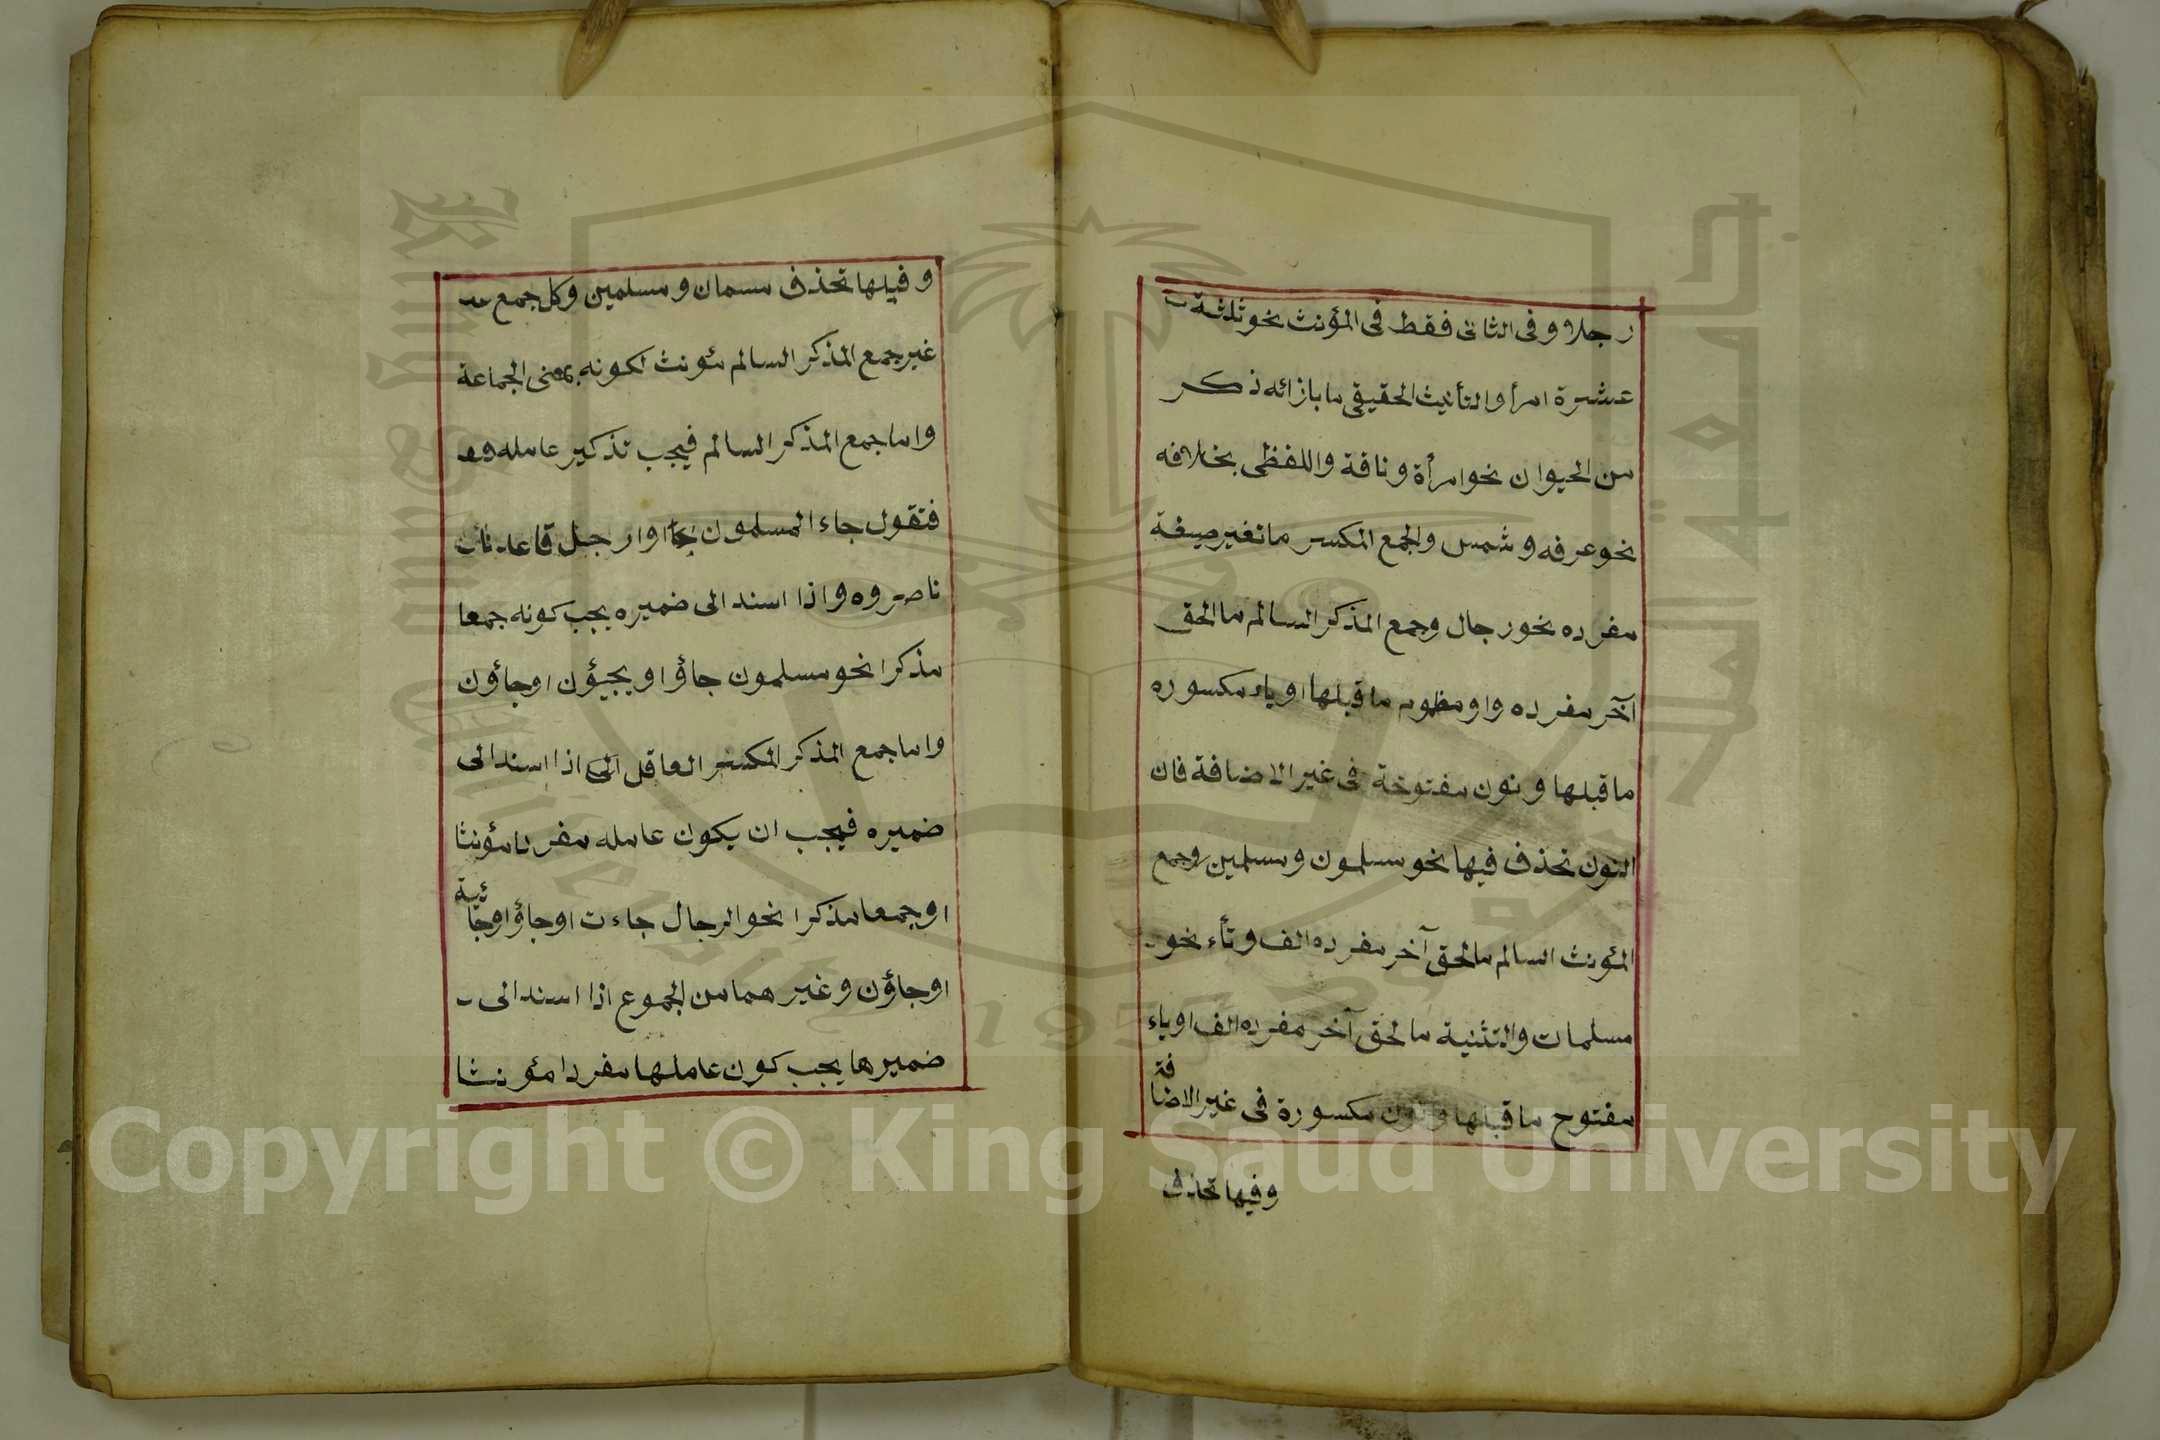 رجلا وفى الثانى فقط فى المؤنث نحو ثلثة
عشرة امرأ والتأنيث الحقيقى ما بازائه ذكر
من الحيوان نحو امرأة وناقة واللفظى بخلافه
نحو عرفه وشمس والجمع المكسر ما تغير صيغة
مفرده نحو رجال وجمع المذكر السالم ما الحق
آخر مفرده واو مظموم ما قبلها او ياء مكسوره
ما قبلها ونون مفتوحة فى غير الاضافة فان
النون تحذف فيها نحو مسلمون ومسلمين وجمع
المؤنث السالم ما لحق آخر مفرده الف وتاء نحو
مسلمات والتثنية ما لحق آخر مفرده الف او ياء
مفتوح ما قبلها ونون مكسورة فى غير الاضافة
وفيها تحذف
وفيلها تحذف مسمان ومسلمين وكل جمع
غير جمع المذكر السالم مئونث لكونه بمعنى الجماعة
واما جمع المذكر السالم فيجب تذكير عامله
فتقول جاء المسلمون او رجل قاعد
ناصروه واذا اسند الى ضميره يجب كونه جمعا
مذكرا نحو مسلمون جاؤا او يجيؤن او جاؤن
واما جمع المذكر المكسر العاقل اذا اسند الى
ضميره فيجب ان يكون عامله مفردا مؤنثا
او جمعا مذكرا نحو الرجال جاءت او جاؤا او جائية
او جاؤن وغير هما من الجموع اذا اسند الى
ضميرها يجب كون عاملها مفردا مئونثا
King Saud University
1957
Copyright © King Saud University